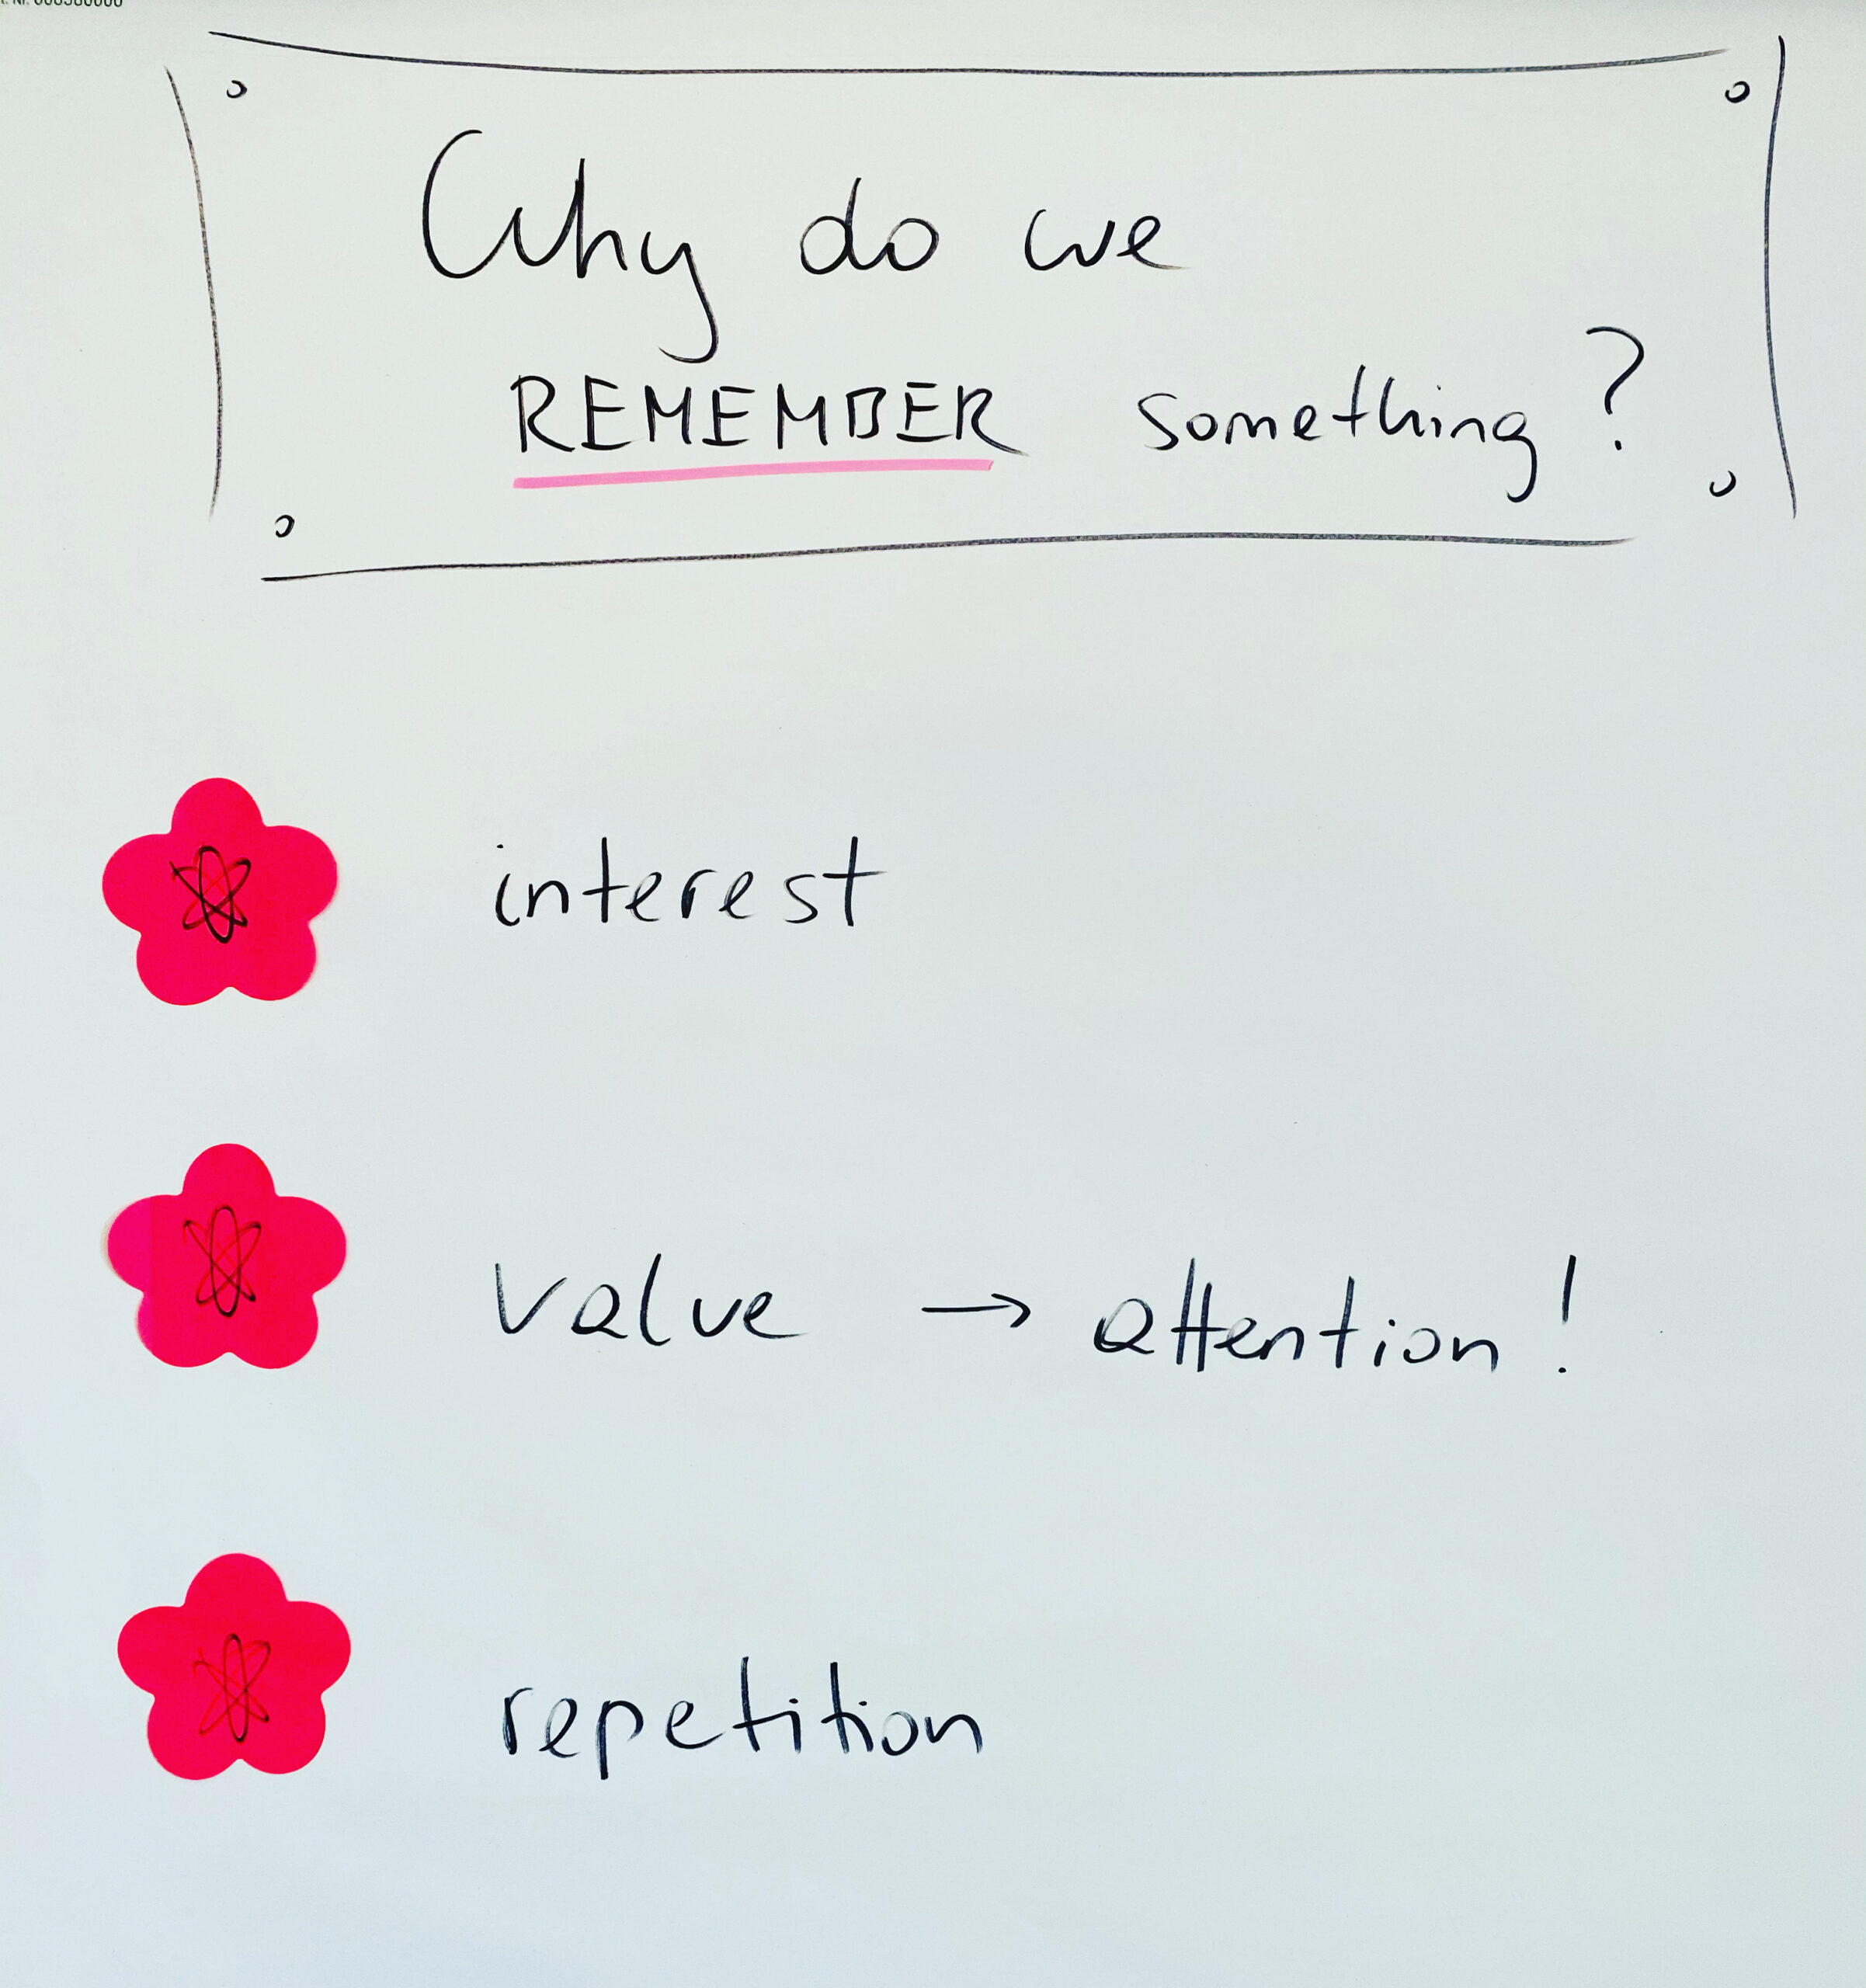 Why do we
REMEMBER something?
interest
value → attention!
repetition